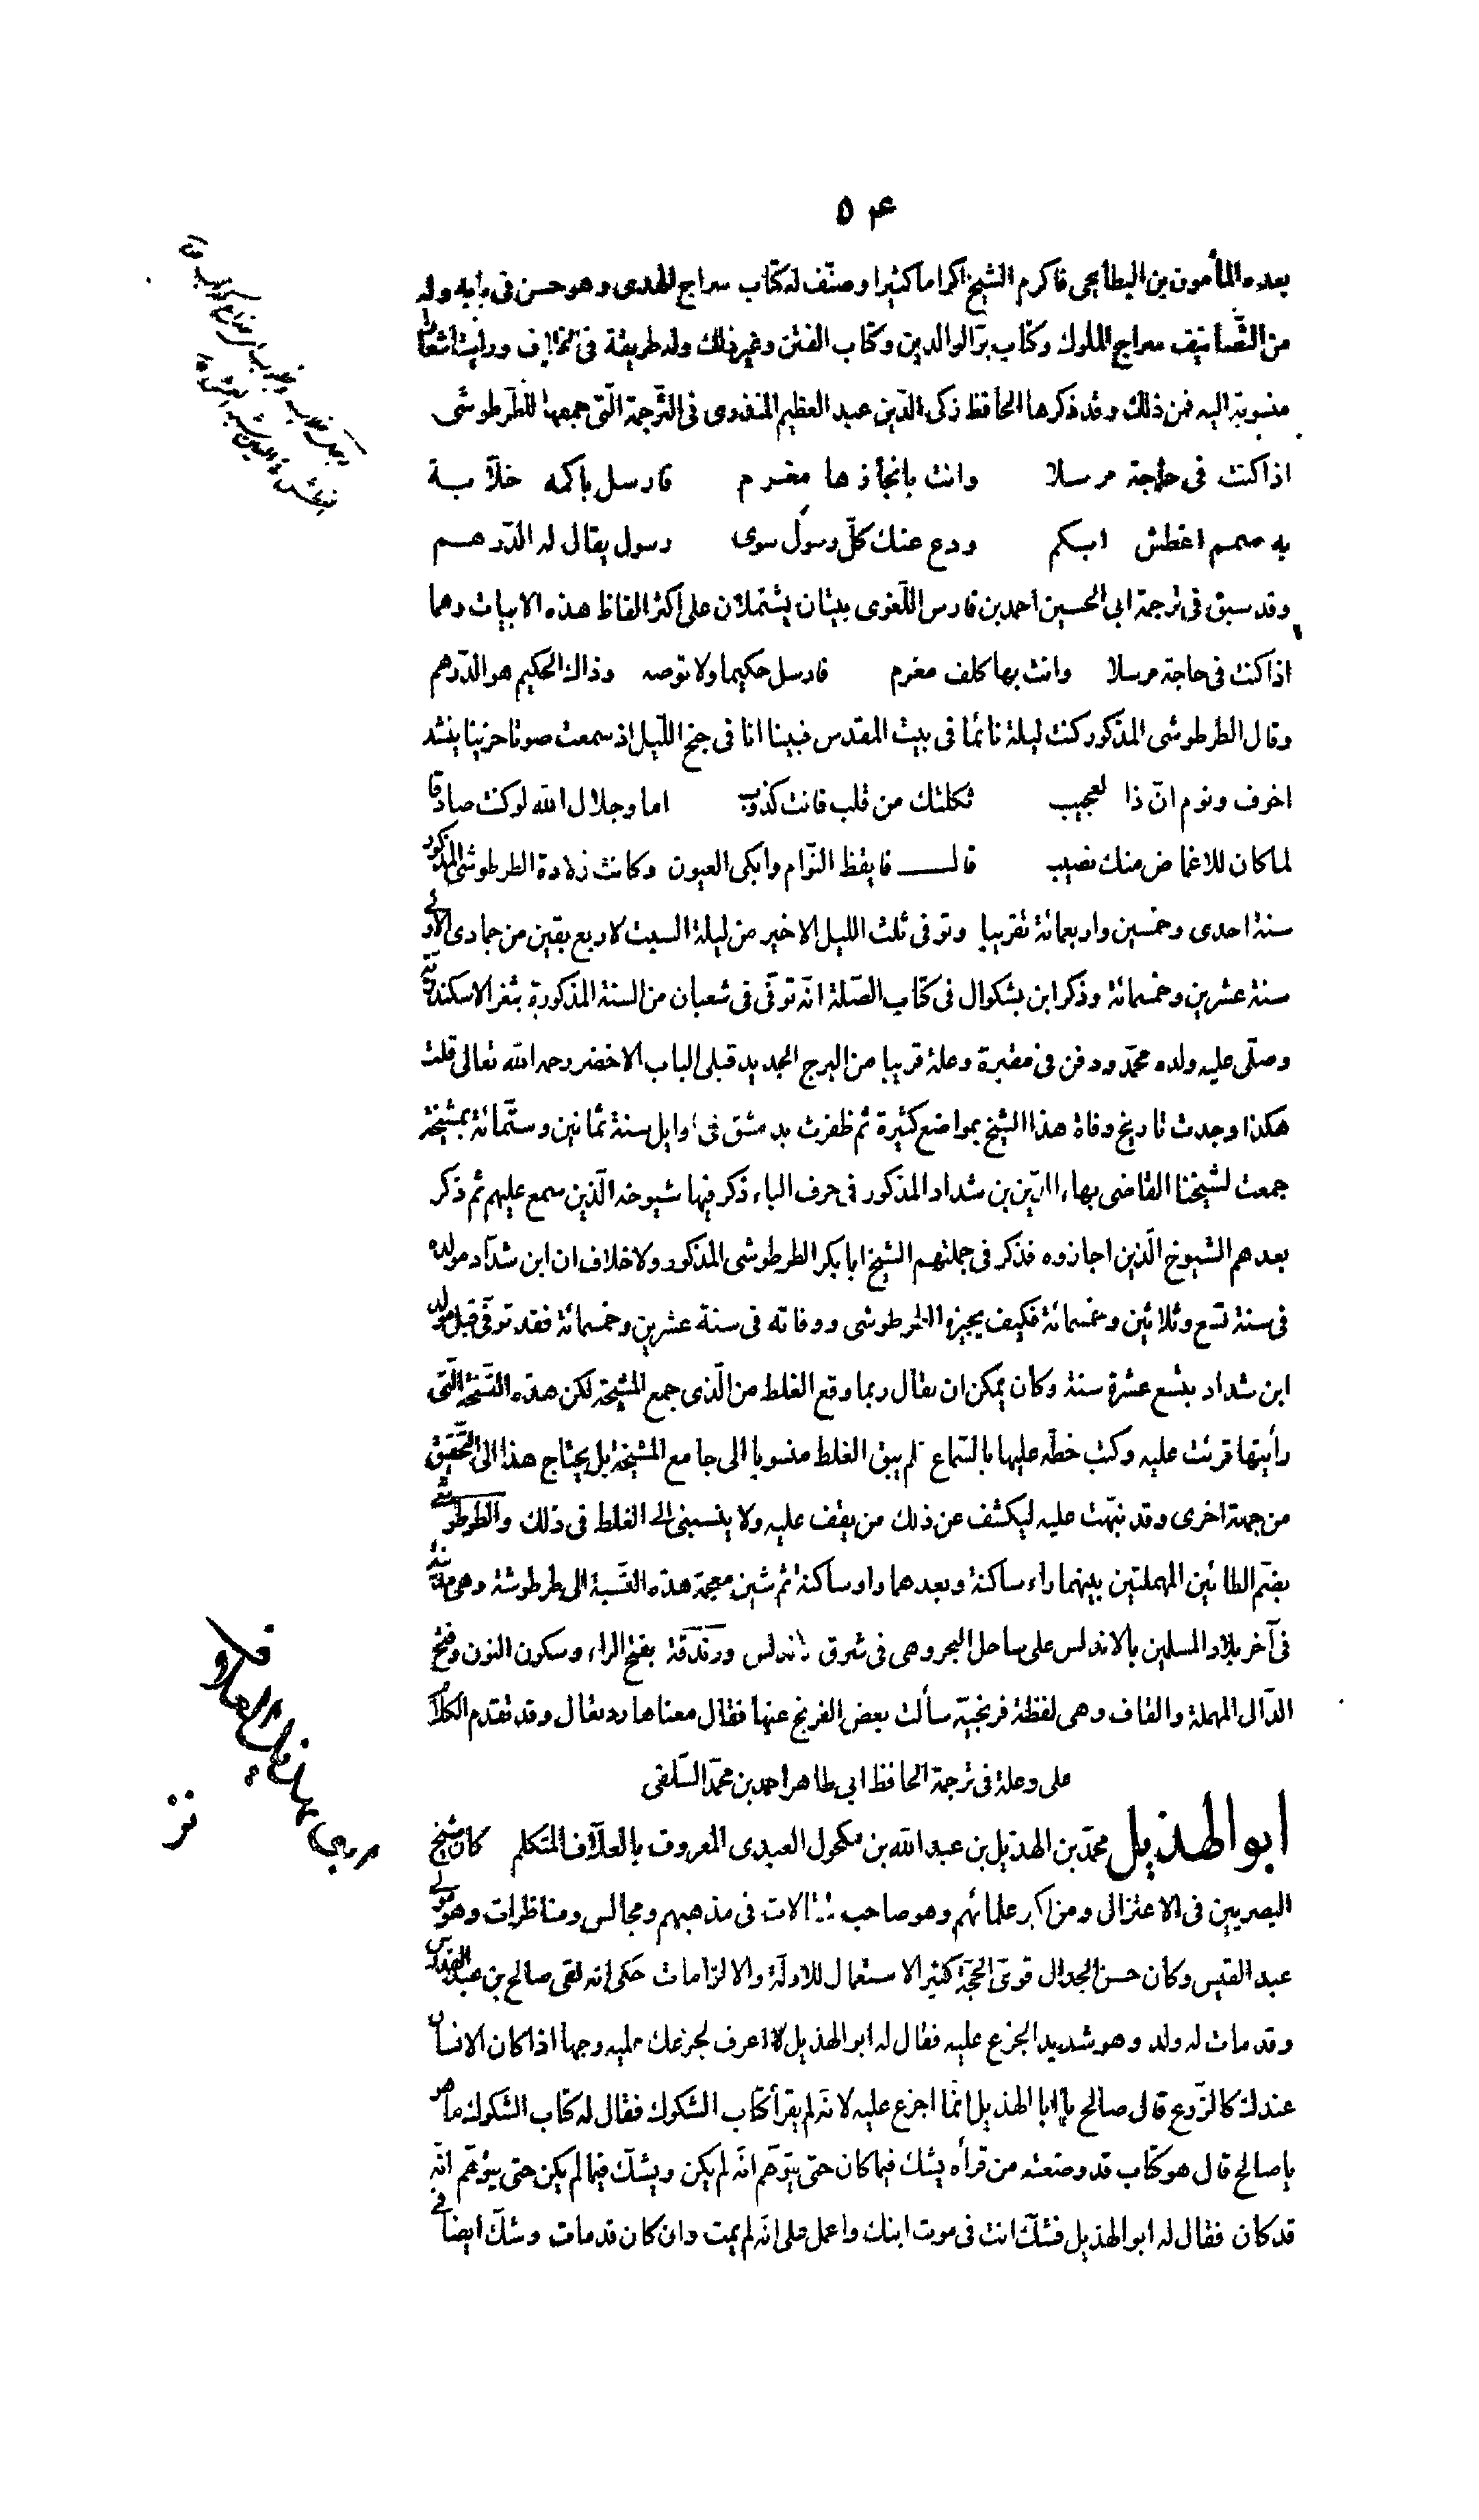 ٥٤
بعده المأمون بن البطايحي فاكرم الشيخ اكراما كثيرا وصنّف له كتاب سراج الهدى وهو حسن فى بابه وله
من التّصانيف سراج الملوك وكتاب برّ الوالدين وكتاب الفتن وغير ذلك وله طريقة فى الخلاف ورايت اشعارا
منسوبة اليه فمن ذلك وقد ذكرها الحافظ زكى الدّين عبد العظيم المنذرى فى التّرجمة الّتى جمعها للطّرطوشى
اذا كنت فى حاجة مرسلا وانت بانجاذها مغرم فارسل باكمه خلّابة
به صمم اغطش ابكم ودع عنك كلّ رسول سوى رسول يقال له الدّرهم
وقد سبق فى ترجمة ابى الحسين احمد بن فارس اللّغوى بيتان يشتملان على اكثر الفاظ هذه الابيات وهما
اذا كنت فى حاجة مرسلا وانت بها كلف مغرم فارسل حكيما ولا توصه وذاك الحكيم هو الدّرهم
وقال الطرطوشى المذكور كنت ليلة نائما فى بيت المقدس فبينا انا فى جنح اللّيل اذ سمعت صوتا حزينا ينشد
اخوف ونوم انّ ذا لعجيب ثكلتك من قلب فانت كذوب اما وجلال الله لو كنت صادقا
لما كان للاغماض منك نصيب قال فايقظ النّوام وابكى العيون وكانت ولادة الطرطوشى المذكور
سنة احدى وخمسين واربعمائة تقريبا وتوفى ثلث الليل الاخير من ليلة السبت لاربع بقين من جمادى الاولى
سنة عشرين وخمسمائة وذكر ابن بشكوال فى كتاب الصّلة انّه توفّى فى شعبان من السنة المذكورة بثغر الاسكندريّة
وصلّى عليه ولده محمّد ودفن فى مقبرة وعلة قريبا من البرج الجديد قبلى الباب الاخضر رحمه الله تعالى قلت
هكذا وجدت تاريخ وفاة هذا الشيخ بمواضع كثيرة ثم ظفرت بدمشق فى اوايل سنة ثمانين وستّمائة بمشيخة
جمعت لشيخنا القاضى بهاء الدّين بن شداد المذكور فى حرف الباء ذكر فيها شيوخه الّذين سمع عليهم ثم ذكر
بعدهم الشيوخ الّذين اجازوه فذكر فى جملتهم الشيخ ابا بكر الطرطوشى المذكور ولا خلاف ان ابن شدّاد مولده
فى سنة تسع وثلاثين وخمسمائة فكيف يجيزه الطرطوشى ووفاته فى سنة عشرين وخمسمائة فقد توفّى قبل مولد
ابن شداد بتسع عشرة سنة وكان يمكن ان يقال ربما وقع الغلط من الّذى جمع المشيخة لكن هذه النّسخة الّتى
رأيتها قرئت عليه وكتب خطّه عليها بالسّماع لم يبق الغلط منسوبا الى جامع المشيخة بل يحتاج هذا الى التّحقيق
من جهة اخرى وقد نبّهت عليه ليكشف عن ذلك من يقف عليه ولا ينسبنى الى الغلط فى ذلك والطرطوشى
بضمّ الطائين المهملتين بينهما راء ساكنة وبعدهما واو ساكنة ثم شين معجمة هذه النّسبة الى طرطوشة وهى مدينة
فى آخر بلاد المسلمين بالاندلس على ساحل البحر وهى فى شرق الاندلس ورندقة بفتح الراء وسكون النون وفتح
الدّال المهملة والقاف وهى لفظة فرنجيّة سألت بعض الفرنج عنها فقال معناها رد تعال وقد تقدم الكلام
على وعلة فى ترجمة الحافظ ابى طاهر احمد بن محمّد السّلفى
ابو الهذيل محمّد بن الهذيل بن عبد الله بن مكحول العبدى المعروف بالعلّاف المتكلم كان شيخ
البصريين فى الاعتزال ومن اكبر علمائهم وهو صاحب مقالات فى مذهبهم ومجالس ومناظرات وهو مولى
عبد القيس وكان حسن الجدال قوىّ الحجّة كثير الاستعمال للادلّة والالزامات حكى انه لقى صالح بن عبد القدّوس
وقد مات له ولد وهو شديد الجزع عليه فقال له ابو الهذيل لا اعرف لجزعك عليه وجها اذا كان الانسان
عندك كالزّرع قال صالح يا ابا الهذيل انّما اجزع عليه لانّه لم يقرأ كتاب الشكوك فقال له كتاب الشكوك ما هو
يا صالح قال هو كتاب قد وضعته من قرأه يشك فيما كان حتى يتوّهم انّه لم يكن ويشكّ فيما لم يكن حتى يتوهّم انّه
قد كان فقال له ابو الهذيل فشكّ انت فى موت ابنك واعمل على انّه لم يمت وان كان قد مات وشكّ ايضا فى